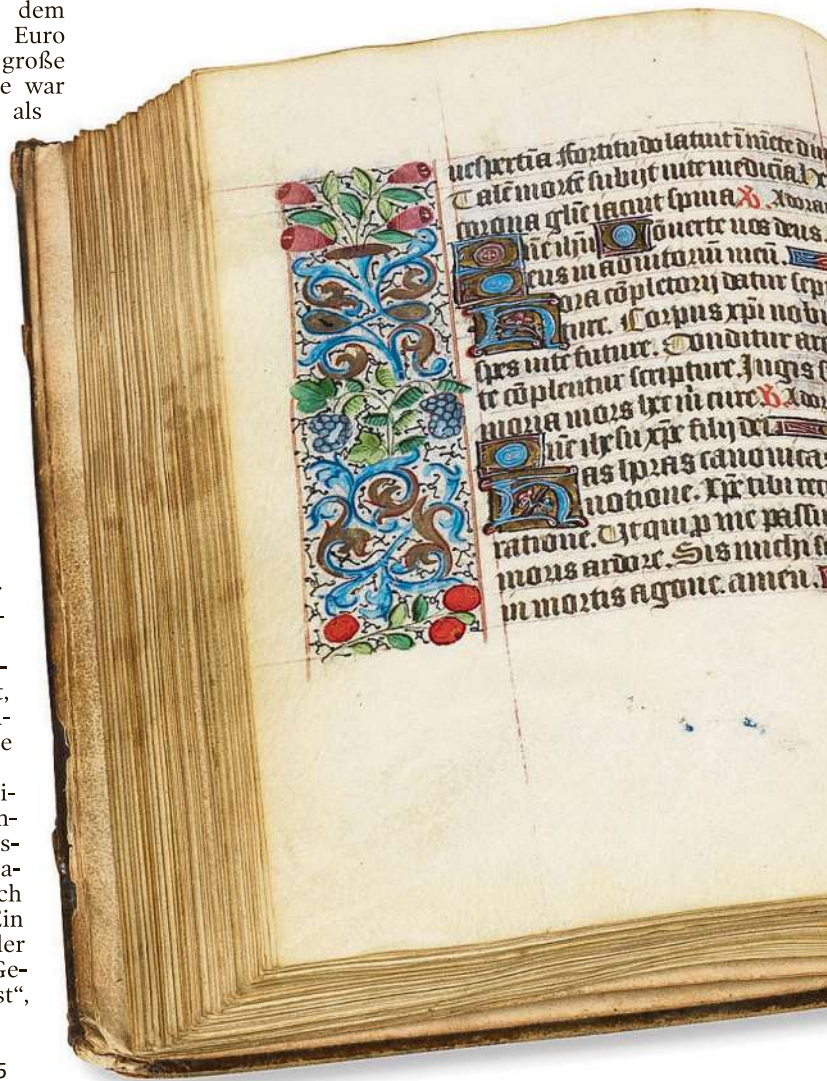 dem
Euro
große
e war
als
t,
e
i-
n-
s-
a-
ch
Ein
der
Ge-
st“,
5
uespertīa ffortitudo latuit ī
Talē mortē subijt uite mediciā
corona gl̄ie iacuit supina Adora
Dn̄e ihū Cōuerte nos deus.
Deus in adiutoriū meū.
Hora cōpletorij datur sep
ture. Corpus xp̄i nobi
spes uite future. Conditur aro
te cōplentur scripture. Iugis s
moria mors hec m̄ cure Ador
Dn̄e ihesu xp̄e filij dei.
Has horas canonicas
uotione. Xp̄e tibi rec
ratione. Ut qui p me passu
moris ardore. Sis michi s
in mortis agone. amen.